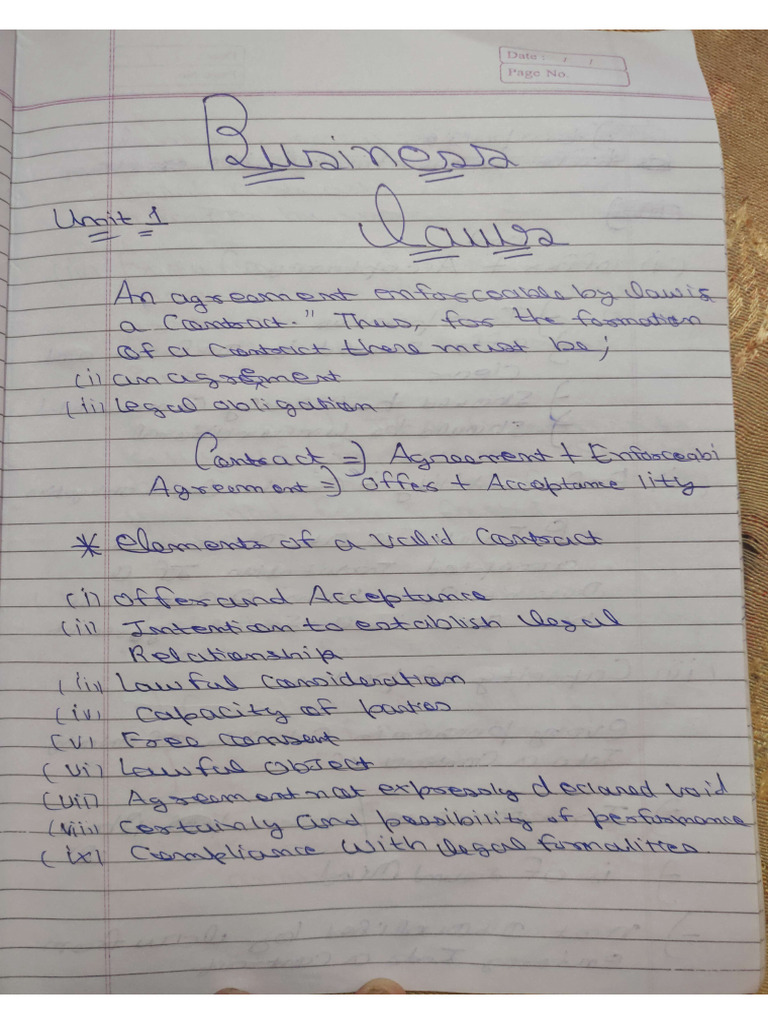 Date : / /
Page No.
Business
Unit 1
Laws
An agreement enforceable by law is
a Contract." Thus, for the formation
of a Contract there must be;
(i) an agreement
(ii) legal obligation
Contract => Agreement + Enforceabi
Agreement => Offer + Acceptance lity
* Elements of a valid Contract
(i) Offer and Acceptance
(ii) Intention to establish legal
Relationship
(iii) Lawful Consideration
(iv) Capacity of parties
(v) Free Consent
(vi) Lawful Object
(vii) Agreement not expressly declared void
(viii) Certainly and possibility of performance
(ix) Compliance with legal formalities.